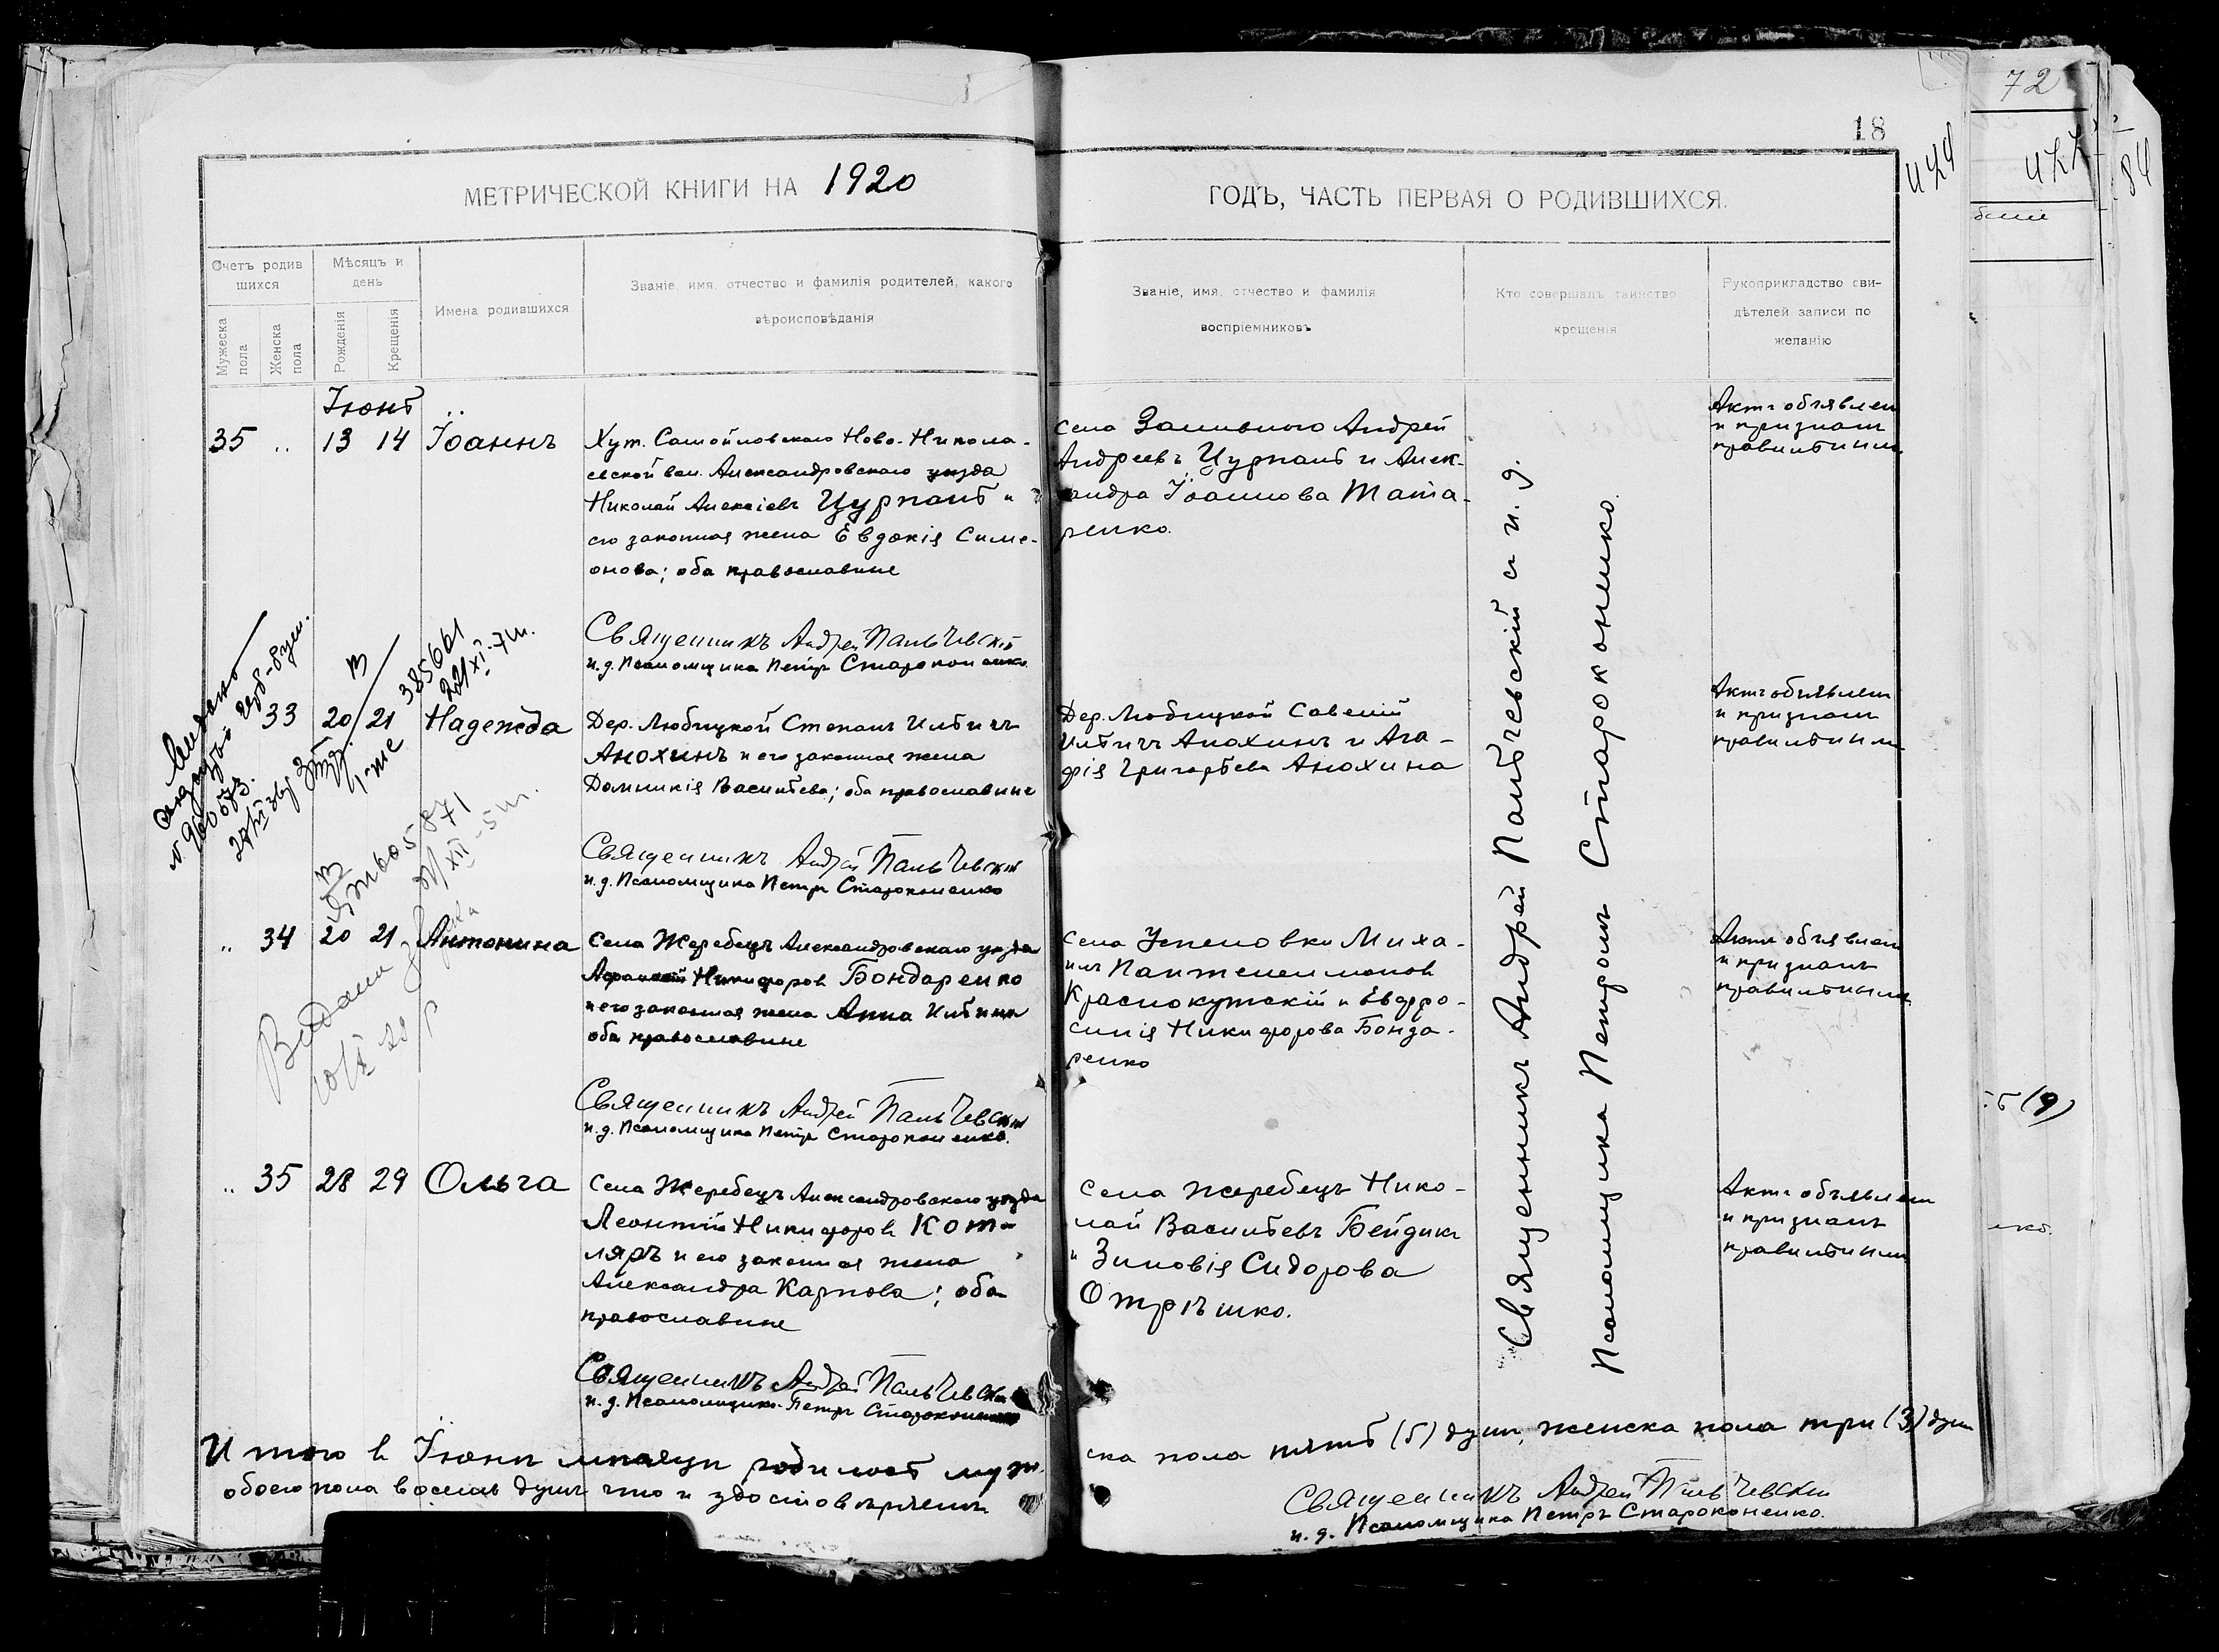 72
18
424
МЕТРИЧЕСКОЙ КНИГИ НА 1920
ГОДЪ, ЧАСТЬ ПЕРВАЯ О РОДИВШИХСЯ.
Счетъ родив
шихся
Мѣсяцъ и
день
Мужеска
пола
Женска
пола
Рожденія
Крещенія
Имена родившихся
Званіе, имя, отчество и фамилія родителей, какого
вѣроисповѣданія
Званіе, имя, отчество и фамилія
воспріемниковъ
Кто совершалъ таинство
крещенія
Рукоприкладство сви-
дѣтелей записи по
желанію
Іюнь
35 " 13 14 Іоаннъ
Хут. Самойловскаго Ново-Никола-
евской вол. Александровскаго уѣзда
Николай Алексіевъ Цурпаль и
его законная жена Евдокія Симе-
онова; оба православные
Священникъ Андрей Пальчевскій
и.д. Псаломщика Петръ Староконенко
села Заливного Андрей
Андреевъ Цурпаль и Алек-
сандра Іоаннова Тата-
ренко.
Актъ объявленъ
и признанъ
правильнымъ
33 20 21 Надежда
Дер. Любицкой Степанъ Ильичъ
Анохинъ и его законная жена
Домникія Васильева; оба православные
Священникъ Андрей Пальчевскій
и.д. Псаломщика Петръ Староконенко
Дер. Любицкой Савелій
Ильичъ Анохинъ и Ага-
фія Григорьева Анохина
Актъ объявленъ
и признанъ
правильнымъ
" 34 20 21 Антонина
Села Жеребецъ Александровскаго уѣзда
Никифоров Бондаренко
и его законная жена Анна Ильина
оба православные
Священникъ Андрей Пальчевскій
и.д. Псаломщика Петръ Староконенко.
Села Успеновки Миха-
илъ Пантелеимонов
Краснокутскій и Евфро-
синія Никифорова Бонда-
ренко
Актъ объявленъ
и признанъ
правильнымъ
" 35 28 29 Ольга
Села Жеребецъ Александровскаго уѣзда
Леонтій Никифоров Кот-
ляръ и его законная жена
Александра Карпова; оба
православные
Священникъ Андрей Пальчевскій
и.д. Псаломщика Петръ Староконенко
Села Жеребецъ Нико-
лай Васильевъ Бейдикъ
и Зиновія Сидорова
Отрѣшко.
Актъ объявленъ
и признанъ
правильнымъ
Священникъ Андрей Пальчевскій и и.д.
Псаломщика Петронъ Староконенко
Итого в Іюнѣ мѣсяцѣ родилось муже-
ска пола пять (5) душъ, женска пола три (3) душ
обоего пола восемь душъ что и удостовѣряемъ
Священникъ Андрей Пальчевскій
и.д. Псаломщика Петръ Староконенко.